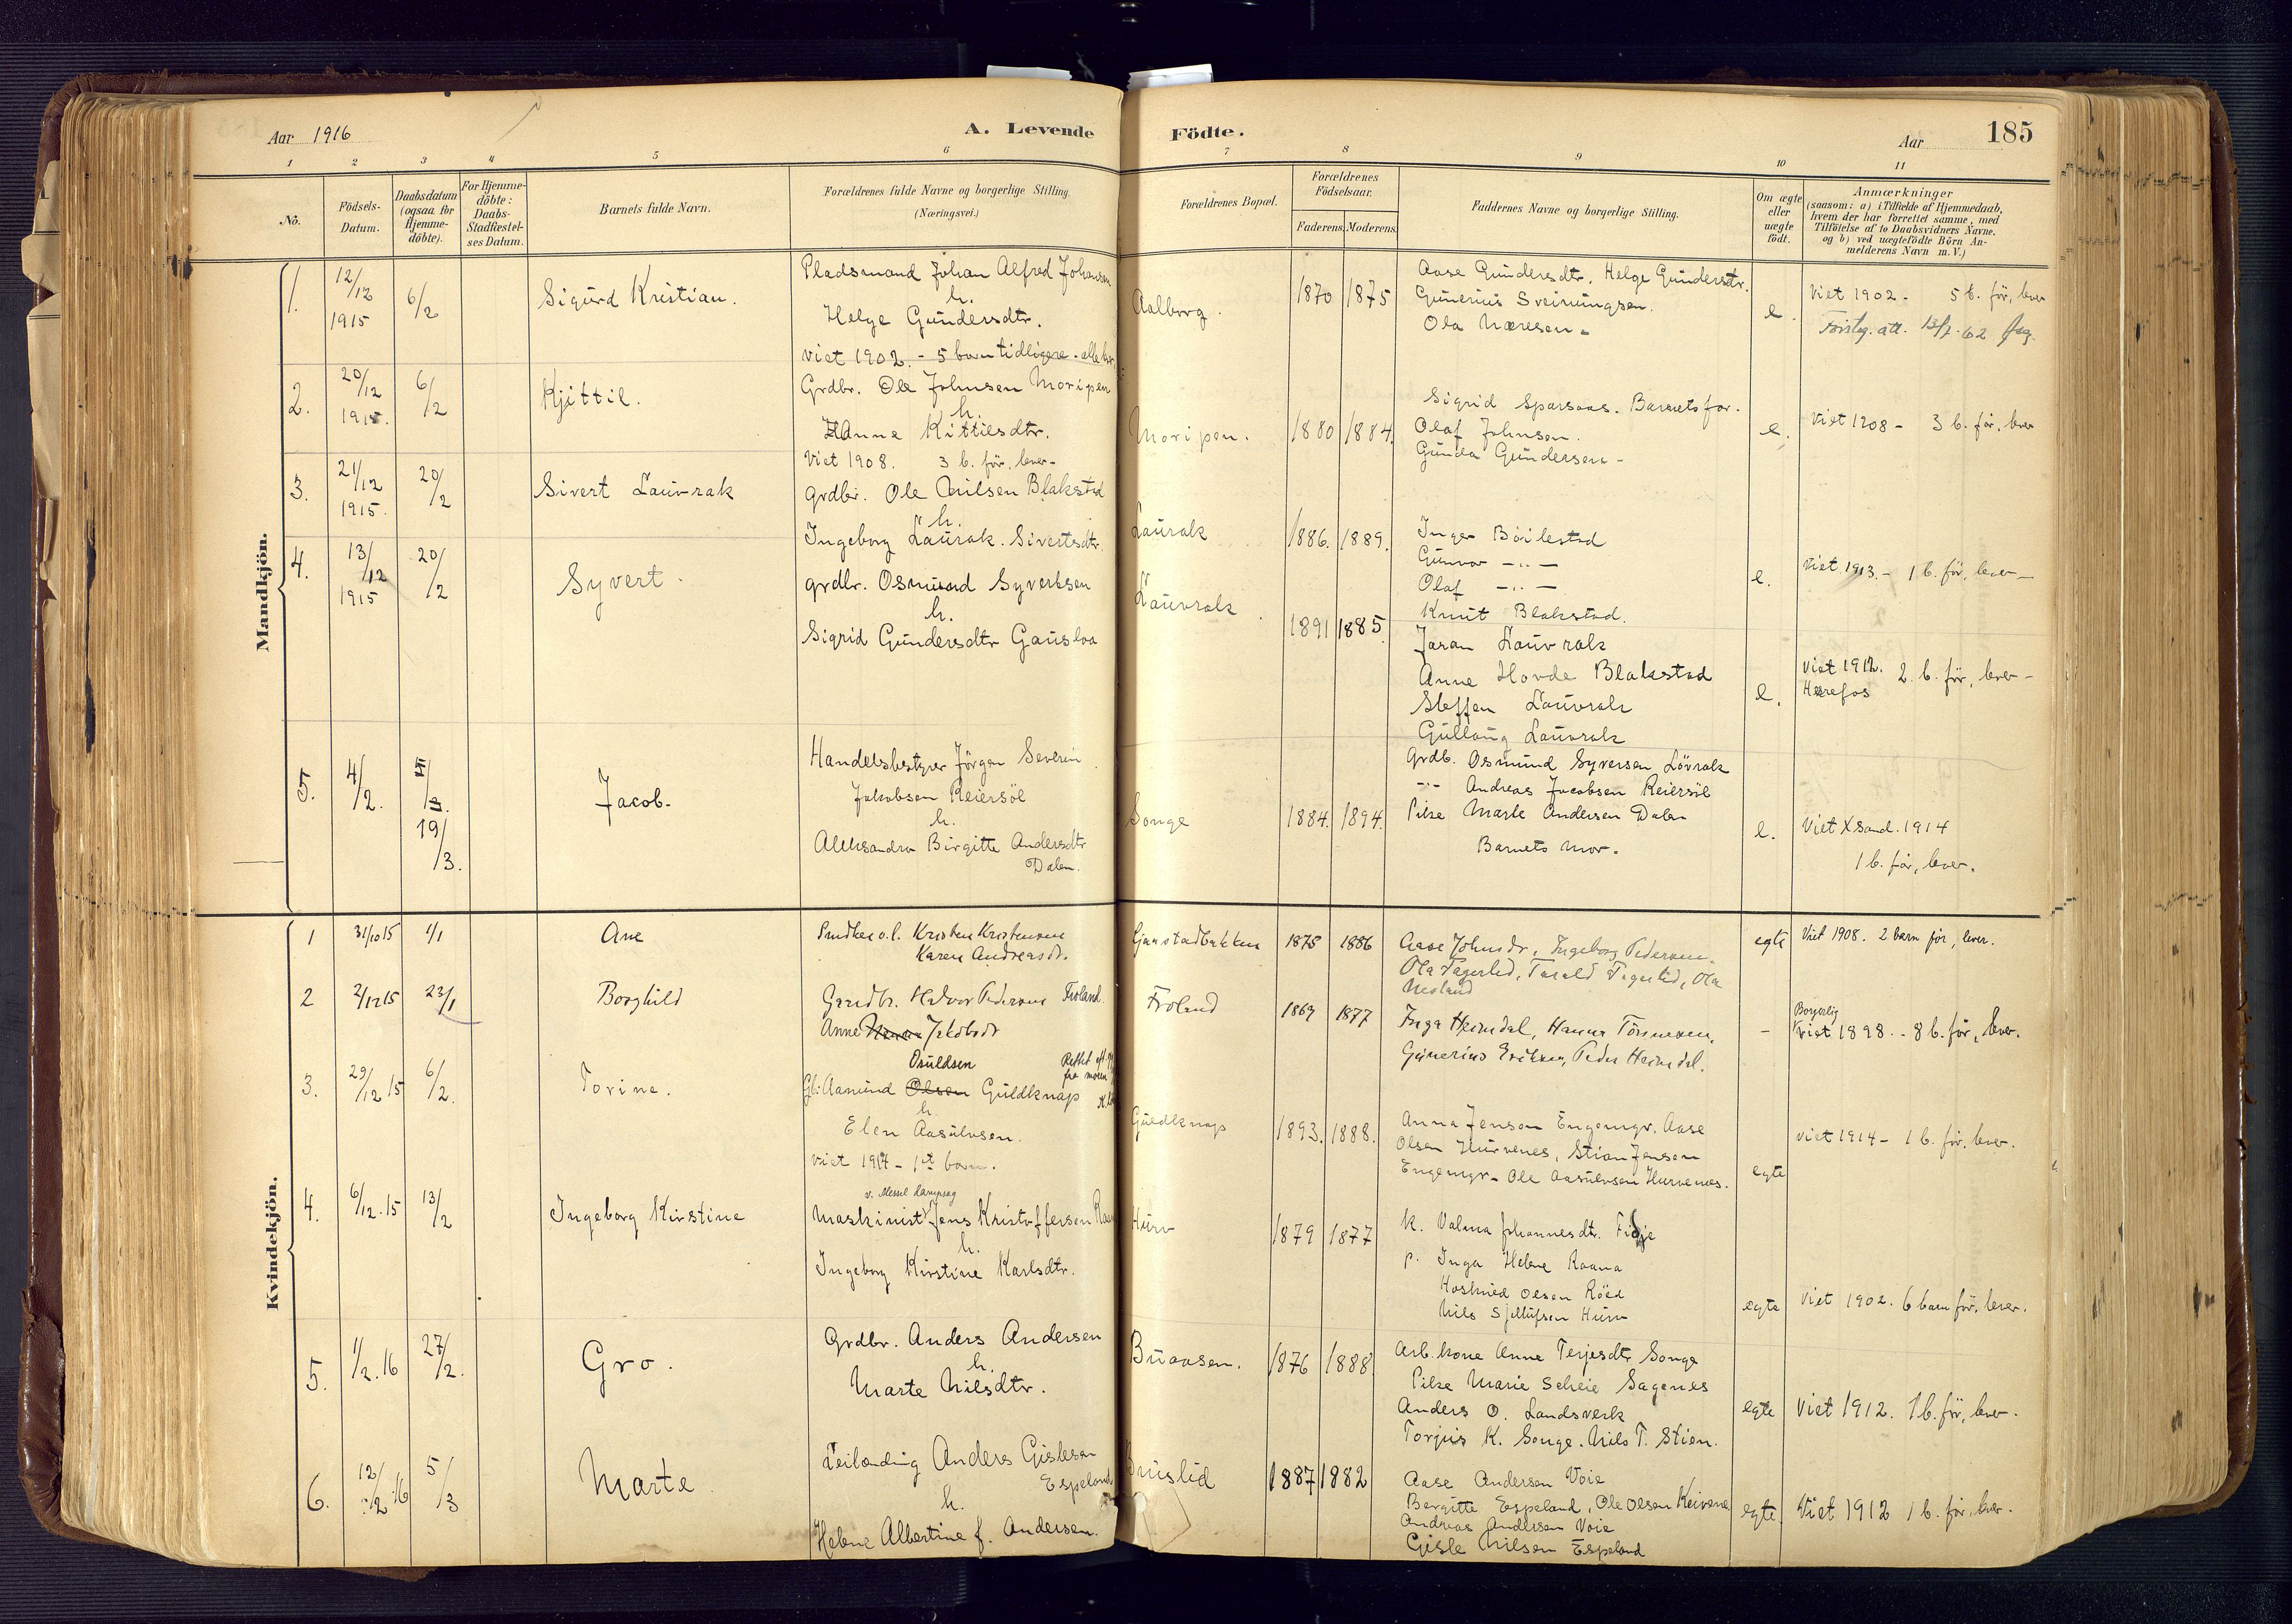 Aar 1916
A. Levende
Födte.
Aar
185
1 2 3 4 5 6 7 8 9 10 11
No.
Födsels-
Datum.
Daabsdatum
(ogsaa for
Hjemme-
döbte).
For Hjemme-
döbte:
Daabs-
Stadfæstel-
ses Datum.
Barnets fulde Navn.
Forældrenes fulde Navne og borgerlige Stilling.
(Næringsvei.)
Forældrenes Bopæl.
Forældrenes
Födselsaar.
Faderens. Moderens.
Faddernes Navne og borgerlige Stilling.
Om ægte
eller
uægte
födt.
Anmærkninger
(saasom: a) i Tilfælde af Hjemmedaab,
hvem der har forrettet samme, med
Tilföielse af to Daabsvidners Navne.
og b) ved uægtefödte Börn An-
melderens Navn m. V.)
Mandkjön.
1. 12/12 1915 6/2 Sigurd Kristian.
Pladsmand Johan Alfred Johansen
h.
Helge Gundersdtr.
viet 1902. - 5 barn tidligere - alle
Aalborg.
1870 1875
Aase Gundersdtr. Helge Gundersdtr.
Gunerius Sveinungsen.
Ola
e.
Viet 1902 - 5 b. för, lever
13/2. 62
2. 20/12 1915. 6/2 Kjittil.
Grdbr. Ole Johnsen Moripen
h.
Hanne Kittilsdtr.
Viet 1908. 3 b. för, lever-
Moripen.
1880 1884.
Sigrid Sparsaas. Barnets far.
Olaf Johnsen.
Gunda Gundersen -
e.
Viet 1908 - 3 b. för, lever
3. 21/12 1915. 20/2 Sivert Lauvrak
grdbr. Ole Nilsen Blakstad
h.
Ingeborg Laurak. Sivertsdtr.
Laurak
1886. 1889.
Inger Böilestad
Gunvor -"-
Olaf -"-
Knut Blakstad.
e.
Viet 1913. - 1 b. för, lever -
4. 13/12 1915 20/2 Syvert.
grdbr. Osmund Syvertsen
h.
Sigrid Gundersdtr Gauslaa
Lauvrak
1891 1885.
Jaran Lauvrak
Anne Hovde Blakstad
Steffen Lauvrak
Gullaug Lauvrak
e.
Viet 1912. 2 b. för, lever -
Herefos
5. 4/2. 19/3. Jacob.
Handelsbestyrer Jörgen Severin
Jakobsen Reiersöl
h.
Aleksandra Birgitte Andersdtr
Dalen.
Songe
1884. 1894.
Grdb. Osmund Syversen Lövrak
-"- Andreas Jacobsen Reiersöl
Pike Marte Andersen Dalen
Barnets Mor.
e.
Viet Xsand. 1914
1 b. för, lever.
Kvindekjön.
1 31/10 15 1/1 Ane
Kristen Kristensen
Karen Andreasdr.
Gjaustadbakken
1875 1886
Aase Johnsdr, Ingeborg Pedersen,
Ola Fagerlid, Tarald Fagerlid, Ola
Nesland
egte
Viet 1908. 2 barn för, lever.
2 2/12 15 23/1 Borghild
Gaardbr. Halvor Pedersen Froland
Anne Jakobsdr
Froland
1869 1877
Inga Heimdal, Hanna Tönnesen,
Gunerius Eriksen, Peder Heimdal.
-
Borgerlig
Viet 1898 - 8 b. för, lever.
3. 29/12 15 6/2. Torine.
Osuldsen
Rettet
fra
Gb: Aamund Olsen Guldknap
h.
Elen Aasulvsen.
Viet 1914 - 1st barn.
Guldknap
1893. 1888.
Anna Jensen Engemyr, Aase
Olsen Hurvenes, Stian Jensen
Engemyr - Ole Aasulvsen Hurvenes.
egte
Viet 1914 - 1 b. för, lever.
4. 6/12. 15 13/2 Ingeborg Kirstine
v. Messel dampsag
Maskinist Jens Kristoffersen
h.
Ingeborg Kirstine Karlsdtr.
Hurv
1879 1877
k. Valma Johannesdtr. Fidje
p. Inga Helene Raana
Olsen Röed
Nils Hurv
egte
Viet 1902. 6 barn för, lever.
5. 1/2. 16 27/2. Gro.
Grdbr. Anders Andersen
h.
Marte Nilsdtr.
Buaasen.
1876 1888
Arb. kone Anne Terjesdtr Songe
Pike Marie Scheie Sagenes
Anders O. Landsverk
Torjus K. Songe. Nils T. Stien.
egte
Viet 1912. 1 b. för, lever.
6. 12/2 16 5/3 Marte
Leilænding Anders Gislesen
Espeland
h.
Helene Albertine f. Andersen.
Buslid
1887 1882
Aase Andersen Voie
Bergitte Espeland, Ole Olsen Keivene
Andreas Andersen Voie
Gisle Nilsen Espeland
egte
Viet 1912 1 b. för, lever.